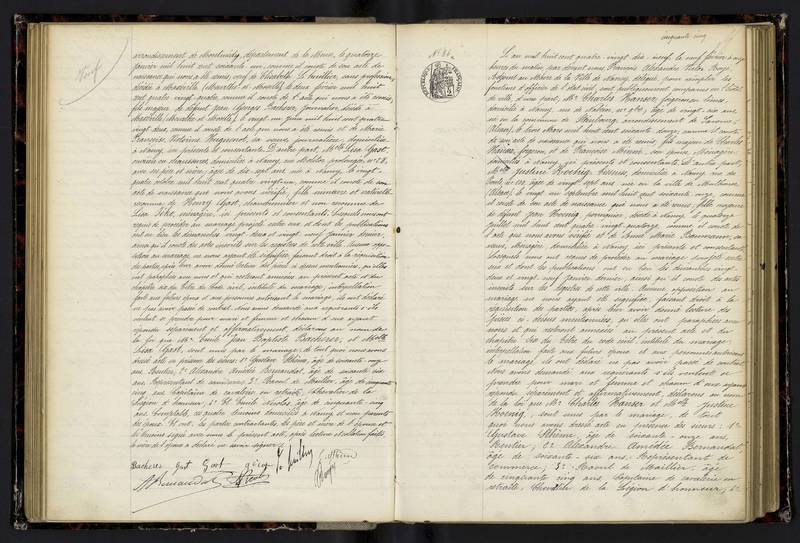 arrondissement de Montmédy, département de la Meuse, le quatorze
janvier mil huit cent soixante un, comme il conste de son acte de
naissance qui nous a été remis, veuf de Elisabeth
décédée à Maxéville (Meurthe et Moselle) le deux février mil huit
cent quatre vingt quatre, comme il conste de l'acte qui nous a été remis
fils majeur de défunt Jean Georges Bacherer, journalier, décédé à
Maxéville (Meurthe et Moselle), le vingt un juin mil huit cent quatre
vingt deux, comme il conste de l'acte qui nous a été remis et de Marie
Françoise Victorine Huguenot, sa veuve, journalière, domiciliée
à Nancy, ci présente et consentante. D'autre part, Mlle Lisa Gast,
ouvrière en chaussures, domiciliée à Nancy, rue Molitor prolongée, n° 28,
avec ses père et mère, âgée de dix sept ans, née à Nancy, le vingt
quatre octobre mil huit cent quatre vingt un, comme il conste de son
acte de naissance que nous avons vérifié, fille mineure et naturelle
reconnue de Henry Gast, chaudronnier et non reconnue de
Lisa ménagère, ici présents et consentants. Lesquels nous ont
requis de procéder au mariage projeté entre eux et dont les publications
ont eu lieu les dimanches vingt deux et vingt neuf janvier dernier,
ainsi qu'il conste des actes inscrits sur les registres de cette ville. Aucune oppo-
sition au mariage ne nous ayant été signifiée, faisant droit à la réquisition
des parties, après leur avoir donné lecture des pièces ci dessus mentionnées, qu'elles
ont paraphées avec nous et qui resteront annexées au présent acte et du
chapitre six du titre du Code civil, intitulé du mariage, interpellation
faite aux futurs époux et aux personnes autorisant le mariage, ils ont déclaré
ne pas avoir passé de contrat. Nous avons demandé aux requérants s'ils
veulent se prendre pour mari et femme et chacun d'eux ayant
répondu séparément et affirmativement, déclarons au nom de
la loi que Mr. Emile Jean Baptiste Bacherer, et Melle
Lisa Gast, sont unis par le mariage: de tout quoi nous avons
dressé acte en présence des sieurs: 1° Gustave Stheme, âgé de soixante onze
ans, Rentier; 2° Alexandre Amédée Bernardat, âgé de soixante six
ans, Représentant de commerce; 3° Raoul de Maillier, âgé de cinquante
cinq ans, Capitaine de cavalerie en retraite, Chevalier de la
Légion d'honneur; et 4° Emile Nicolas, âgé de cinquante cinq
ans, Comptable, les quatre témoins domiciliés à Nancy et non parents
des époux. Et ont, les parties contractantes, les père et mère de l'épouse et
les témoins signé avec nous le présent acte, après lecture et collation faites
la mère de l'époux a déclaré ne savoir signer.
Bacherer Gast Gast
cinquante cinq
N° 86.
L'an mil huit cent quatre vingt dix-neuf, le neuf février à onze
heures du matin, par devant nous, François Alexandre
Adjoint au Maire de la Ville de Nancy, délégué pour remplir les
fonctions d'officier de l'état civil, sont publiquement comparus en l'hôtel
de ville, d'une part, Mr Charles Hanser, forgeron,
domicilié à Nancy, rue de âgé de vingt six ans,
né en la commune de arrondissement de Saverne,
(Alsace), le trois Mars mil huit cent soixante douze, comme il conste
de son acte de naissance qui nous a été remis, fils majeur de Charles
Hanser, forgeron, et de Françoise son épouse, Ménagère,
domiciliés à Nancy, ici présents et consentants. Et d'autre part,
Melle Justine Koenig, domiciliée à Nancy, rue du
âgée de vingt sept ans, née en la ville de
(Alsace) le vingt un septembre mil huit cent soixante onze, comme
il conste de son acte de naissance qui nous a été remis, fille majeure
de défunt Jean Koenig, décédé à Nancy, le quatorze
juillet mil huit cent quatre vingt quatorze, comme il conste de
l'acte que nous avons vérifié et de Anne Marie sa
veuve, Ménagère, domiciliée à Nancy ici présente et consentante.
Lesquels nous ont requis de procéder au mariage projeté entre
eux et dont les publications ont eu lieu les dimanches vingt-
deux et vingt neuf janvier dernier, ainsi qu'il conste des actes
inscrits sur les registres de cette ville. Aucune opposition au
mariage ne nous ayant été signifiée, faisant droit à la
réquisition des parties, après leur avoir donné lecture des
pièces ci-dessus mentionnées, qu'elles ont paraphées avec
nous et qui resteront annexées au présent acte et du
chapitre six du titre du code civil, intitulé du mariage,
interpellation faite aux futurs époux et aux personnes autorisant
le mariage, ils ont déclaré ne pas avoir passé de contrat.
Nous avons demandé aux requérants s'ils veulent se
prendre pour mari et femme et chacun d'eux ayant
répondu séparément et affirmativement, déclarons au nom
de la loi que Mr Charles Hanser et Melle Justine
Koenig, sont unis par le mariage, de tout
quoi nous avons dressé acte en présence des sieurs: 1°
Gustave Stheme, âgé de soixante-onze ans,
Rentier; 2° Alexandre Amédée Bernardat,
âgé de soixante-six ans, Représentant de
commerce; 3° Raoul de Maillier, âgé
de cinquante cinq ans, Capitaine de cavalerie en
retraite, Chevalier de la Légion d'honneur; 4°